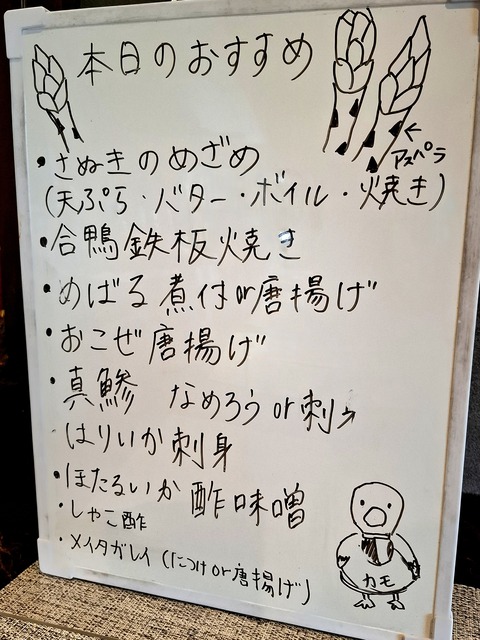 本日のおすすめ
←
アスパラ
・さぬきのめざめ
(天ぷら・バター・ボイル・焼き)
・合鴨鉄板焼き
・めばる煮付or唐揚げ
・おこぜ唐揚げ
・真鯵 なめろうor刺
はりいか刺身
・ほたるいか酢味噌
・しゃこ酢
・メイタガレイ(につけor唐揚げ)
カモ